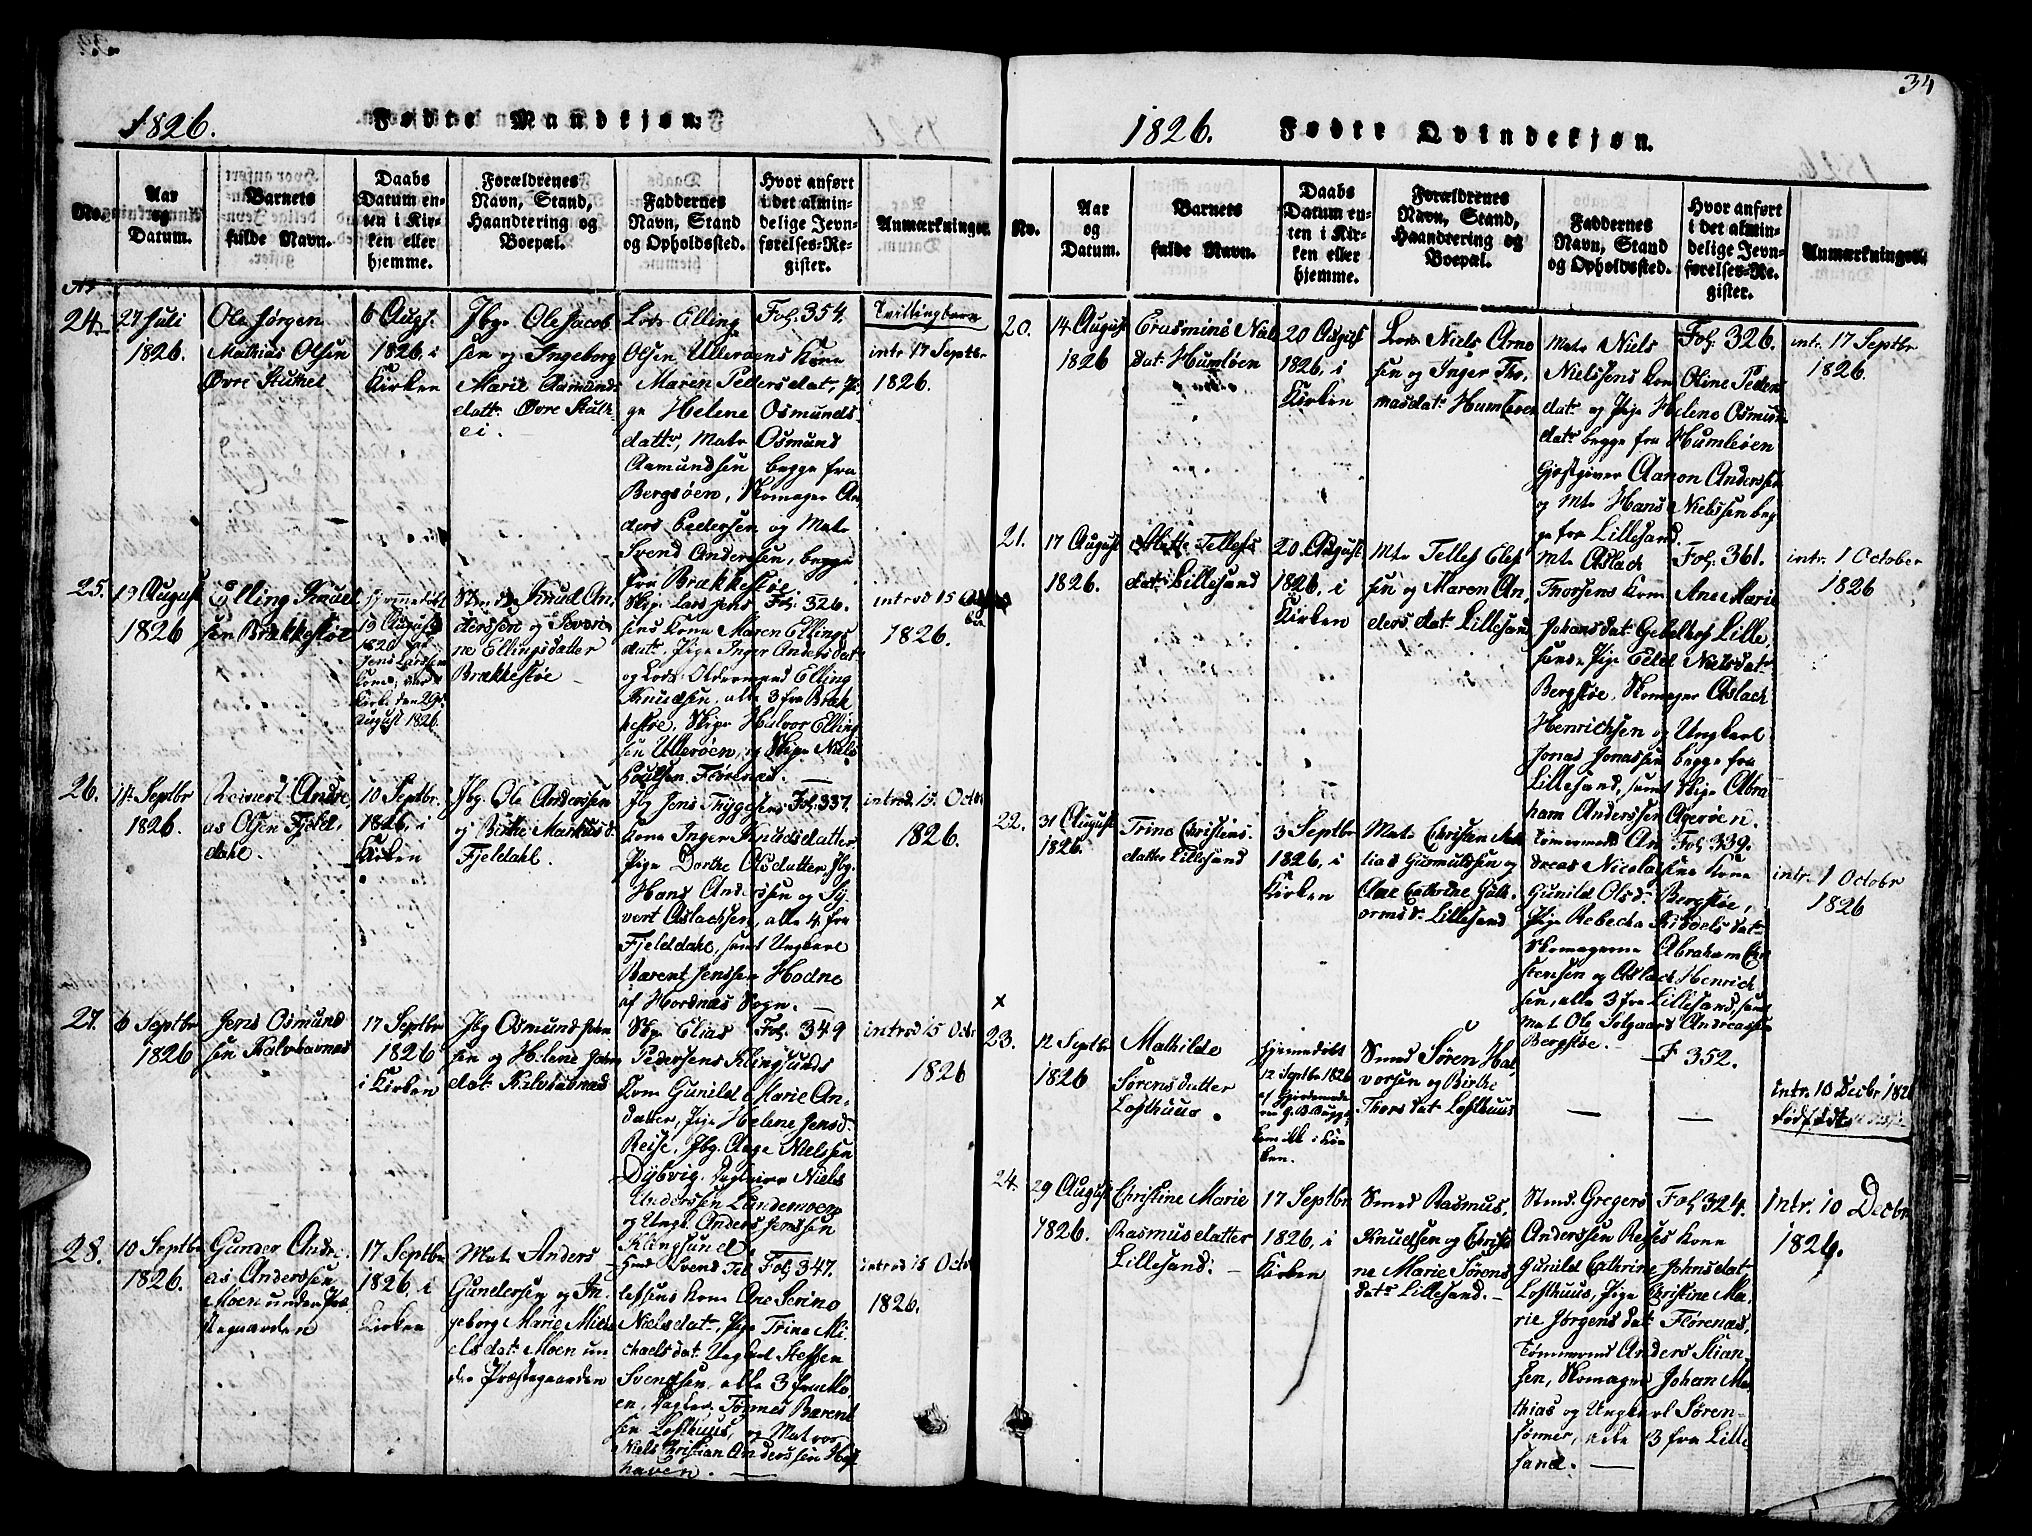 34
1826.
Fødte Mandkjøn.
No.
Aar
og
Datum.
Barnets
fulde Navn.
Daabs
Datum en-
ten i Kir-
ken eller
hjemme.
Forældrenes
Navn, Stand,
Haandtering og
Boepæl.
Faddernes
Navn, Stand
og Opholdssted.
Hvor anført
i det almin-
delige Jevn-
førelses-Re-
gister.
Anmærkninger.
24.
27 Juli
1826.
Ole Jørgen
Mathias Olsen
Øvre Stulhei
6 Augs.
1826 i
Kirken
Jbgr Ole Jacob
sen og Ingeborg
Marie Aamunds
datt. Øvre Stulh
ei.
Lods Elling
Olsen Ulleroens Kone
Maren Pedersdat., Pi
ge Helene Osmunds
dattr, Matr Osmund
Aamundsen begge fra
Bergsøen, Skomager An
ders Pedersen og Matr
Svend Andersen, begge
fra Brækkestøe
Fol. 354.
Tvillingbarn
intr 17 Septbr
1826.
25.
19 August
1826
Elling Knud
sen Brækkestøe
Hjemmedøbt
19 August
1826 af
Jens Larsen
Kone; var i
Kirke den 29
August 1826.
Knud An
derssen og Severi
ne Ellingsdatter
Brækkestøe
Skipr Lars Jens
sens Kone Maren Ellings
dat., Pige Inger Andersdat
og Lods Oldermand Elling
Knudsen, alle 3 fra Bræk
kestøe, Skipr Halvor Elling
sen Ulleroen, og Skipr Niels
Poulsen Flørenæs.
Fol. 326.
introd 15 Octo
1826.
26.
1 Septbr
1826.
Reinert Andre
as Olsen Fjeld
dahl.
10 Septbr.
1826, i
Kirken
Jbg. Ole Anderssen
og Birthe Markusd.
Fjeldahl.
Jbg Jens Thygesens
Kone Inger Knudsdatter
Pige Dorthe Olsdatter, Jbg.
Hans Anderssen og Sy
vert Aslachsen, alle 4 fra
Fjelddahl, samt Ungkarl
Barent Jenssen Hodne
af Hordnæs Sogn.
Fol. 337.
introd. 15. Octo
1826.
27.
6 Septbr
1826
Jens Osmund
sen Kalvhavnæs
17 Septbr
1826
i Kirken
Jbg Osmund Jen
sen og Helene Jens
dat. Kalvhavnæs
Skpr Elias
Pedersens Klingsunds
Kone Gunild Marie An
datter, Pige Helene Jensd.
Reise, Jbg. Aage Nielsen
Dybvig, Niels
Anderssen Lundemoen
og Ungk. Anders Jenssen
Klingsund.
Fol. 349
introd 15 Octo
1826
28.
10 Septbr
1826.
Gunder Andre
as Anderssen
Moen under Præ
stegaarden
17 Septbr
1826, i
Kirken
Mat. Anders
Gundersen og In
geborg Marie Mich
elsdat. Moen un
der Præstegaarden
Svend Tel
lefsens Kone Ane Serine
Nielsdat., Pige Trine Mi
chaelsdat. Ungkarl Steffen
Svendsen, alle 3 fra Mo
en, Tønnes Barent
sen Lofthuus, og Matros
Niels Christian Anderssen Hest
haven.
Fol 347.
introd 15 Octo
1826.
1826.
Fødte Qvindekjøn.
No.
Aar
og
Datum.
Barnets
fulde Navn.
Daabs
Datum en-
ten i Kir-
ken eller
hjemme.
Forældrenes
Navn, Stand,
Haandtering og
Boepæl.
Faddernes
Navn, Stand
og Opholdssted.
Hvor anført
i det almin-
delige Jevn-
førelses-Re-
gister.
Anmærkninger.
20.
14 August
1826
Erasmine Niels
dat. Humløen
20 August
1826, i
Kirken
Lods Niels Arne
sen og Inger Tho
masdat. Humløen
Matr Niels
Nielssens Kone Oline Peders
dat. og Pige Helene Osmunds
dat. begge fra Humløen
Gjestgiver Aanon Anderssen
og Mtr Hans Nielssen beg
ge fra Lillesand.
Fol. 326.
intr. 17 Septbr
1826.
21.
17 August
1826.
Mitte Tellefs
dat. Lillesand
20 August
1826, i
Kirken
Mtr Tellef Elef
sen og Maren An
ders dat. Lillesand
Mtr Aslach
Thorsens Kone Ane Marie
Johansdat Lille
sand, Pige Nielsdat.
Bergstøe, Skomager Aslach
Henrichsen og Ungkarl
Jonas Jonassen begge fra
Lillesand, samt Skipr Abra
ham Anderssen Agerøen.
Fol. 361.
intr. 1 October
1826
22.
31 August
1826.
Trine Christens
datter Lillesand
3 Septbr
1826, i
Kirken
Matr Christian
Gunnuldssen og
Ane Cathrine Gutt
ormsd. Lillesand
Tømmermd An
dreas Nicolaisens Kone
Gunild Olsd. Bergstøe,
Pige Rebecka
Skomagerne Abraham Chri
stensen og Aslach Henrich
sen, alle 3 fra Lillesand, samt
Mat Ole Andreassen
Bergstøe.
Fol 339.
intr. 1 Octobr
1826
x
23.
12 Septbr
1826
Mathilde
Sørensdatter
Lofthuus.
Hjemmedøbt
12 Septbr 1826
af Gjordemode
ren
kom ikk i Kir
ken.
Smed Søren Hal
vorsen og Birthe
Thorsdat Lofthuus
F 352.
intr. 10 Decbr 1826
24.
29 August
1826.
Christine Marie
Rasmusdatter
Lillesand.
17 Septbr
1826, i
Kirken
Smed Rasmus
Knudsen og Christi
ne Marie Sørens
dat. Lillesand.
Smed Gregers
Anderssen Kone
Gunild Cathrine Johnsdat
Lofthuus, Pige Christine Ma
rie Jørgensdat Flørenæs,
Tømmermd Anders Kian
sen, Skomager Johan Ma
thias og Ungkarl Søren
Sønner, alle 3 fra Lille
sand.
Fol 324.
intr. 10 Decbr
1826.